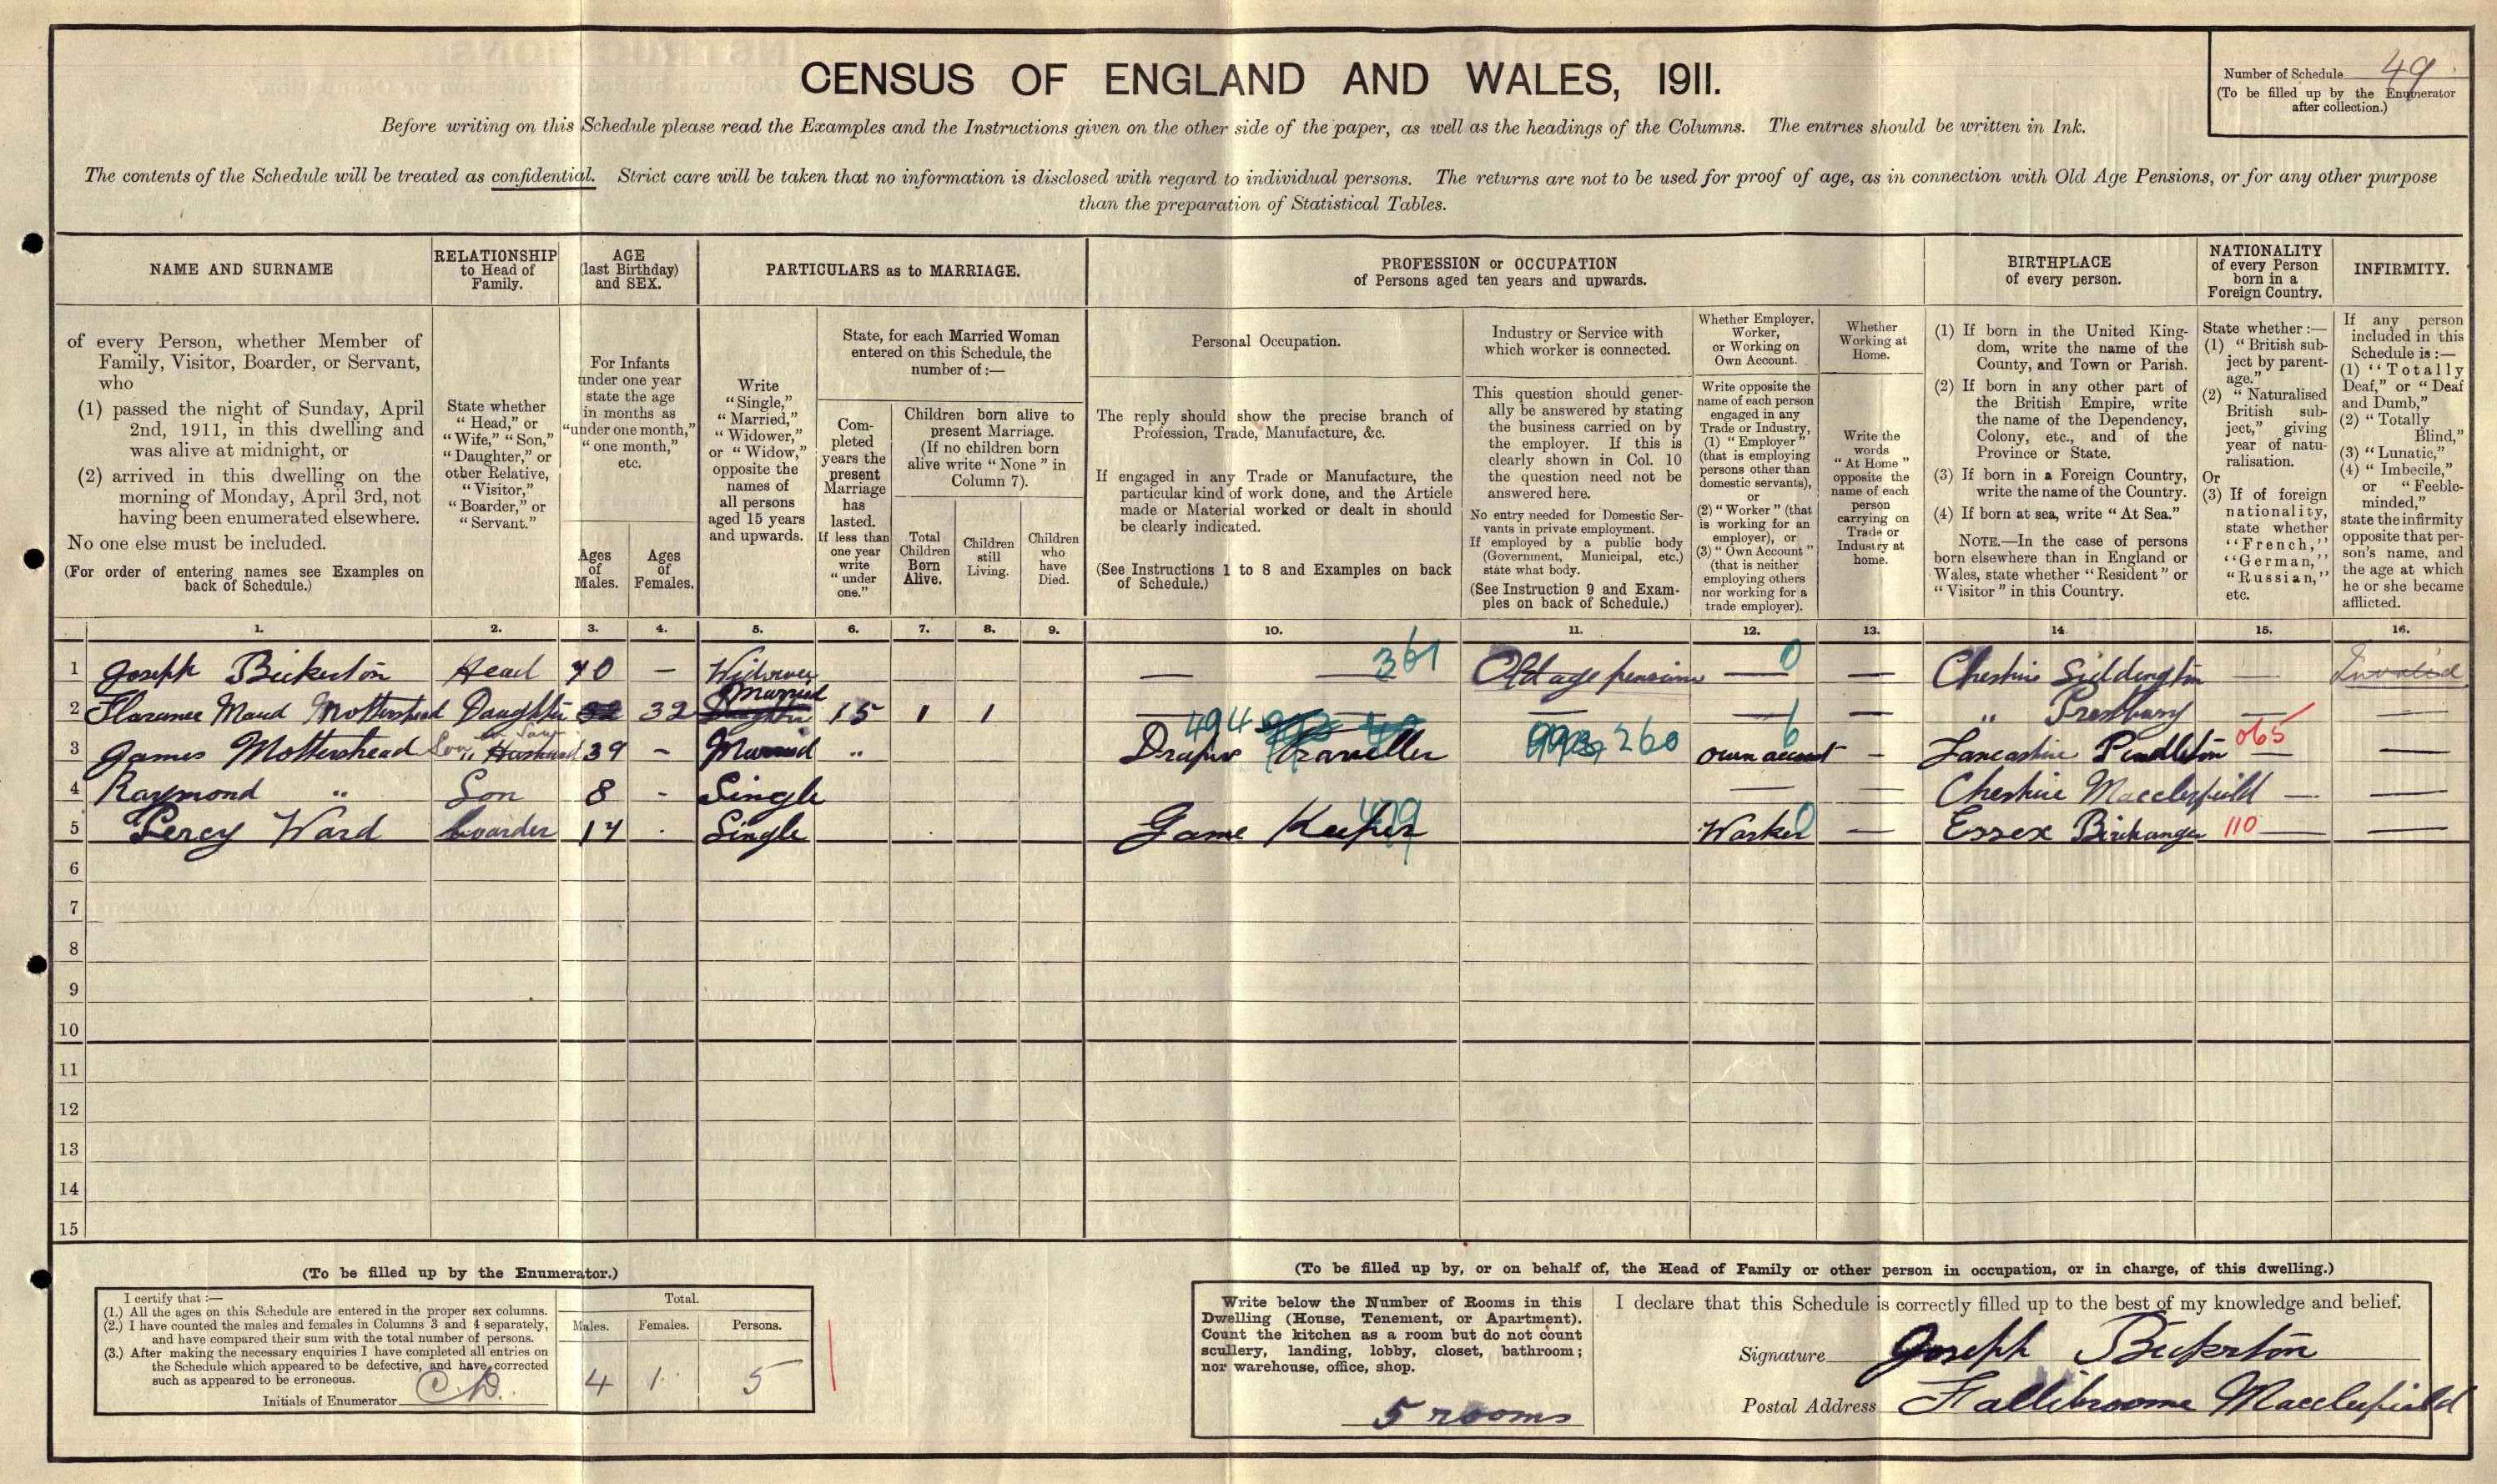 CENSUS OF ENGLAND AND WALES, 1911.
Number of Schedule 49
(To be filled up by the Enumerator
after collection.)
Before writing on this Schedule please read the Examples and the Instructions given on the other side of the paper, as well as the headings of the Columns. The entries should be written in Ink.
The contents of the Schedule will be treated as confidential. Strict care will be taken that no information is disclosed with regard to individual persons. The returns are not to be used for proof of age, as in connection with Old Age Pensions, or for any other purpose
than the preparation of Statistical Tables.
NAME AND SURNAME
of every Person, whether Member of
Family, Visitor, Boarder, or Servant,
who
(1) passed the night of Sunday, April
2nd, 1911, in this dwelling and
was alive at midnight, or
(2) arrived in this dwelling on the
morning of Monday, April 3rd, not
having been enumerated elsewhere.
No one else must be included.
(For order of entering names see Examples on
back of Schedule.)
RELATIONSHIP
to Head of
Family.
State whether
"Head," or
"Wife," "Son,"
"Daughter," or
other Relative,
"Visitor,"
"Boarder," or
"Servant."
AGE
(last Birthday)
and SEX.
For Infants
under one year
state the age
in months as
"under one month,"
"one month,"
etc.
Ages
of
Males.
Ages
of
Females.
PARTICULARS as to MARRIAGE.
Write
"Single,"
"Married,"
"Widower,"
or "Widow,"
opposite the
names of
all persons
aged 15 years
and upwards.
State, for each Married Woman
entered on this Schedule, the
number of:—
Com-
pleted
years the
present
Marriage
has
lasted.
If less than
one year
write
"under
one."
Children born alive to
present Marriage.
(If no children born
alive write "None" in
Column 7).
Total
Children
Born
Alive.
Children
still
Living.
Children
who
have
Died.
PROFESSION or OCCUPATION
of Persons aged ten years and upwards.
Personal Occupation.
The reply should show the precise branch of
Profession, Trade, Manufacture, &c.
If engaged in any Trade or Manufacture, the
particular kind of work done, and the Article
made or Material worked or dealt in should
be clearly indicated.
(See Instructions 1 to 8 and Examples on back
of Schedule.)
Industry or Service with
which worker is connected.
This question should gener-
ally be answered by stating
the business carried on by
the employer. If this is
clearly shown in Col. 10
the question need not be
answered here.
No entry needed for Domestic Ser-
vants in private employment.
If employed by a public body
(Government, Municipal, etc.)
state what body.
(See Instruction 9 and Exam-
ples on back of Schedule.)
Whether Employer,
Worker,
or Working on
Own Account.
Write opposite the
name of each person
engaged in any
Trade or Industry,
(1) "Employer"
(that is employing
persons other than
domestic servants),
or
(2) "Worker" (that
is working for an
employer), or
(3) "Own Account"
(that is neither
employing others
nor working for a
trade employer).
Whether
Working at
Home.
Write the
words
"At Home"
opposite the
name of each
person
carrying on
Trade or
Industry at
home.
BIRTHPLACE
of every person.
(1) If born in the United King-
dom, write the name of the
County, and Town or Parish.
(2) If born in any other part of
the British Empire, write
the name of the Dependency,
Colony, etc., and of the
Province or State.
(3) If born in a Foreign Country,
write the name of the Country.
(4) If born at sea, write "At Sea."
NOTE.—In the case of persons
born elsewhere than in England or
Wales, state whether "Resident" or
"Visitor" in this Country.
NATIONALITY
of every Person
born in a
Foreign Country.
State whether:—
(1) "British sub-
ject by parent-
age."
(2) "Naturalised
British sub-
ject," giving
year of natu-
ralisation.
Or
(3) If of foreign
nationality,
state whether
"French,"
"German,"
"Russian,"
etc.
INFIRMITY.
If any person
included in this
Schedule is:—
(1) "Totally
Deaf," or "Deaf
and Dumb,"
(2) "Totally
Blind,"
(3) "Lunatic,"
(4) "Imbecile,"
or "Feeble-
minded,"
state the infirmity
opposite that per-
son's name, and
the age at which
he or she became
afflicted.
1. 2. 3. 4. 5. 6. 7. 8. 9. 10. 11. 12. 13. 14. 15. 16.
1 Joseph Bickerton Head 70 — Widower — 361 Old age pension 0 — Cheshire Siddington — Invalid
2 Florence Maud Mottershead Daughter 32 Married 15 1 1 — — — — „ Prestbury —
3 James Mottershead Son in Law Husband 39 - Married „ Drapers Traveller 494 260 own account 6 - Lancashire Pendleton 065 —
4 Raymond „ Son 8 - Single — — Cheshire Macclesfield — —
5 Percy Ward boarder 17 Single Game Keeper Worker 0 — Essex Birchanger 110 —
6
7
8
9
10
11
12
13
14
15
(To be filled up by the Enumerator.)
I certify that:—
(1.) All the ages on this Schedule are entered in the proper sex columns.
(2.) I have counted the males and females in Columns 3 and 4 separately,
and have compared their sum with the total number of persons.
(3.) After making the necessary enquiries I have completed all entries on
the Schedule which appeared to be defective, and have corrected
such as appeared to be erroneous.
Initials of Enumerator
Total.
Males. Females. Persons.
4 1 5
(To be filled up by, or on behalf of, the Head of Family or other person in occupation, or in charge, of this dwelling.)
Write below the Number of Rooms in this
Dwelling (House, Tenement, or Apartment).
Count the kitchen as a room but do not count
scullery, landing, lobby, closet, bathroom;
nor warehouse, office, shop.
5 rooms
I declare that this Schedule is correctly filled up to the best of my knowledge and belief.
Signature Joseph Bickerton
Postal Address Fallibroome Macclesfield